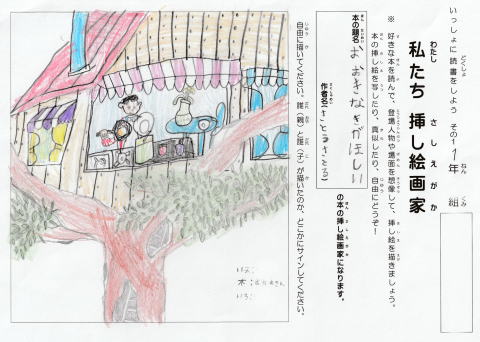 いっしょに読書をしよう その1 1年 組
私たち 挿し絵画家
※ 好きな本を読んで、登場人物や場面を想像して、挿し絵を描きましょう。
本の挿し絵を写したり、真似したり、自由にどうぞ！
本の題名 おおきなきがほしい
作者名(さとうさとる)
の本の挿し絵画家になります。
自由に描いてください。誰（親）と誰（子）が描いたのか、どこかにサインしてください。
木：